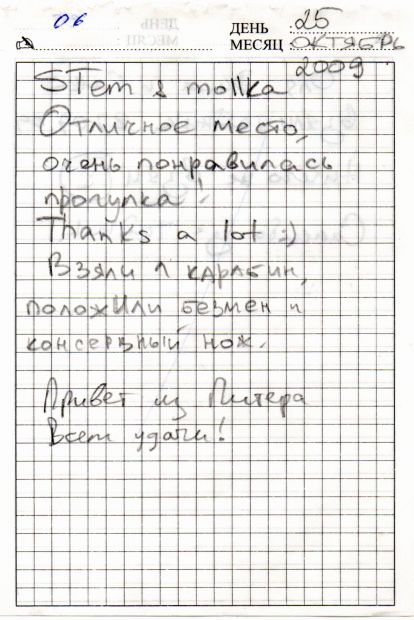 06
ДЕНЬ 25
МЕСЯЦ ОКТЯБРЬ
2009
STem & mollka
Отличное место,
очень понравилась
прогулка!
Thanks a lot :)
Взяли 1 карабин,
положили безмен и
консервный нож.
Привет из Питера
Всем удачи!